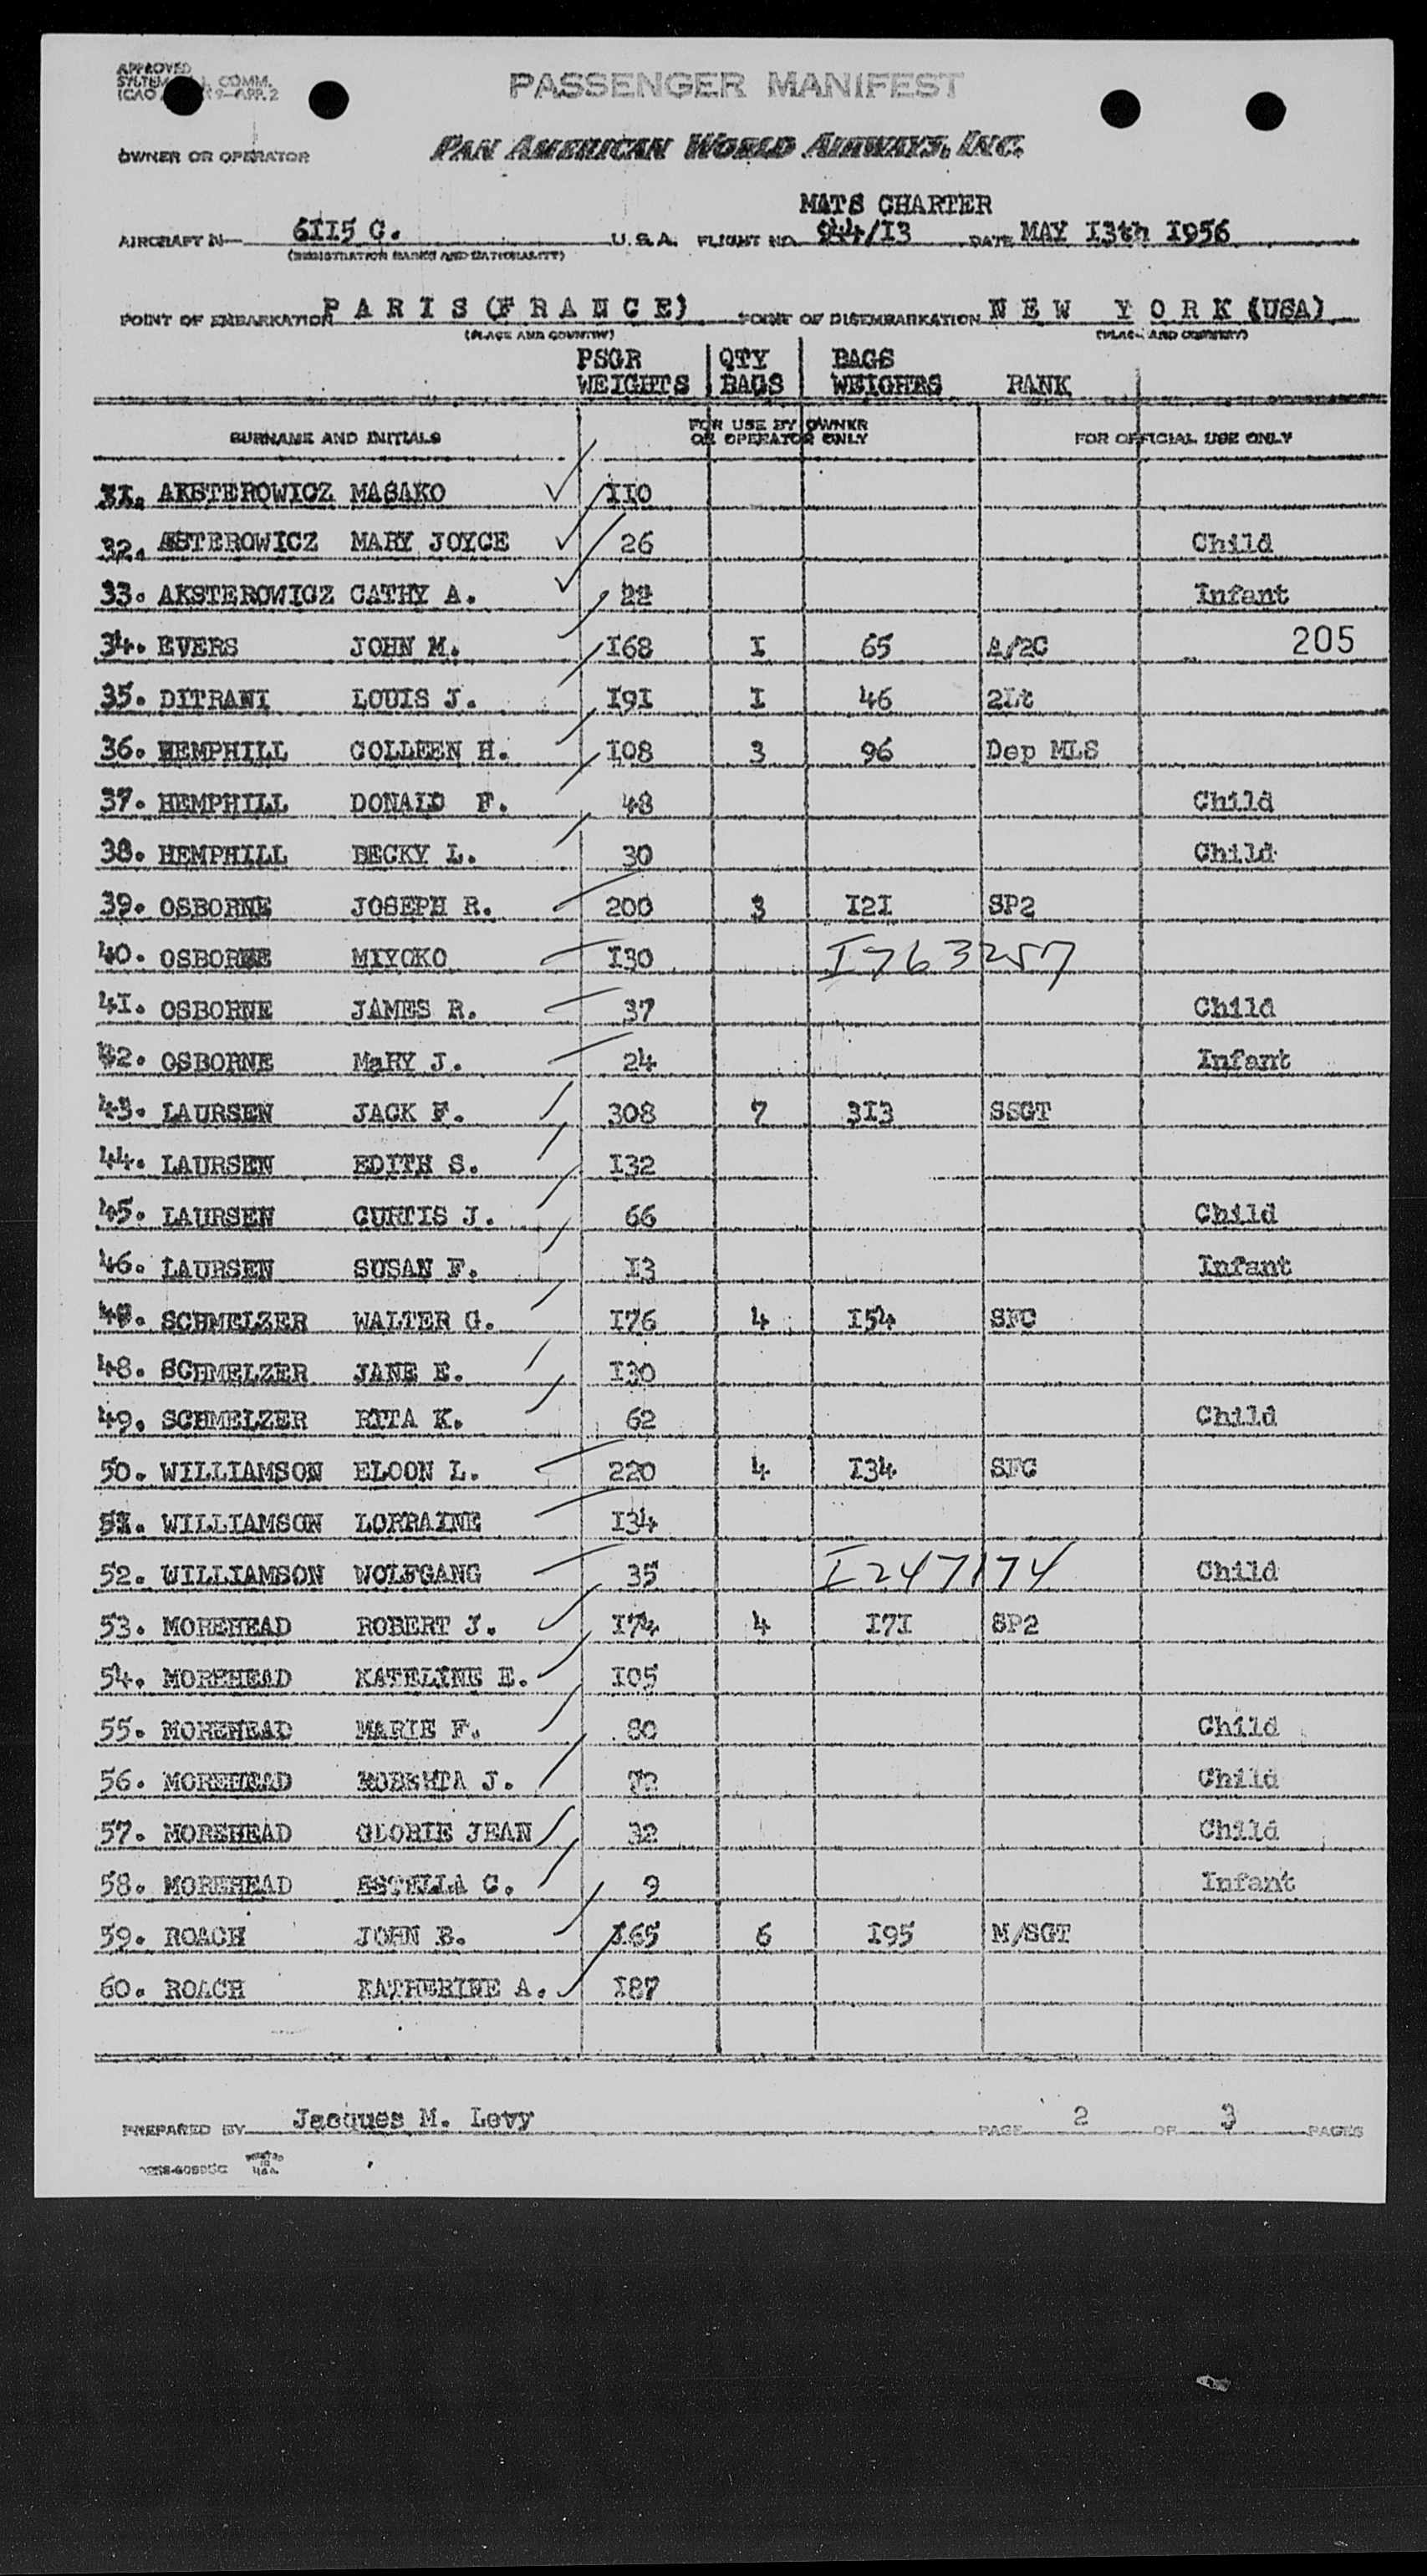 APPROVED
SYSTEM COMM.
ICAO 9-APP. 2
PASSENGER MANIFEST
OWNER OR OPERATOR PAN AMERICAN WORLD AIRWAYS, INC.
MATS CHARTER
AIRCRAFT N- 6II5 C. U.S.A. FLIGHT NO. 944/I3 DATE MAY I3th I956
(REGISTRATION MARKS AND NATIONALITY)
POINT OF EMBARKATION P A R I S (F R A N C E) POINT OF DISEMBARKATION N E W Y O R K (USA)
(PLACE AND COUNTRY) (PLACE AND COUNTRY)
PSGR QTY BAGS
WEIGHTS BAGS WEIGHRS RANK
SURNAME AND INITIALS FOR USE BY OWNER OR OPERATOR ONLY FOR OFFICIAL USE ONLY
3I. AKSTEROWICZ MASAKO II0
32. ASTEROWICZ MARY JOYCE 26 Child
33. AKSTEROWICZ CATHY A. 22 Infant
34. EVERS JOHN M. I68 I 65 A/2C 205
35. DITRANI LOUIS J. I9I I 46 2Lt
36. HEMPHILL COLLEEN H. I08 3 96 Dep MLS
37. HEMPHILL DONALD F. 48 Child
38. HEMPHILL BECKY L. 30 Child
39. OSBORNE JOSEPH R. 200 3 I2I SP2
40. OSBORNE MIYOKO I30 I763257
4I. OSBORNE JAMES R. 37 Child
42. OSBORNE MaRY J. 24 Infant
43. LAURSEN JACK F. 308 7 3I3 SSGT
44. LAURSEN EDITH S. I32
45. LAURSEN CURTIS J. 66 Child
46. LAURSEN SUSAN F. I3 Infant
SCHMELZER WALTER G. I76 4 I54 SFC
48. SCHMELZER JANE E. I30
49. SCHMELZER RITA K. 62 Child
50. WILLIAMSON ELOON L. 220 4 I34 SFC
5I. WILLIAMSON LORRAINE I34
52. WILLIAMSON WOLFGANG 35 I247174 Child
53. MOREHEAD ROBERT J. I74 4 I7I SP2
54. MOREHEAD KATELINE E. I05
55. MOREHEAD MARIE F. 80 Child
56. MOREHEAD ROBERTA J. 72 Child
57. MOREHEAD GLORIE JEAN 32 Child
58. MOREHEAD ESTELLA C. 9 Infant
59. ROACH JOHN B. I65 6 I95 M/SGT
60. ROACH KATHERINE A. I87
PREPARED BY Jacques M. Levy PAGE 2 OF 3 PAGES
PRINTED IN U.S.A.